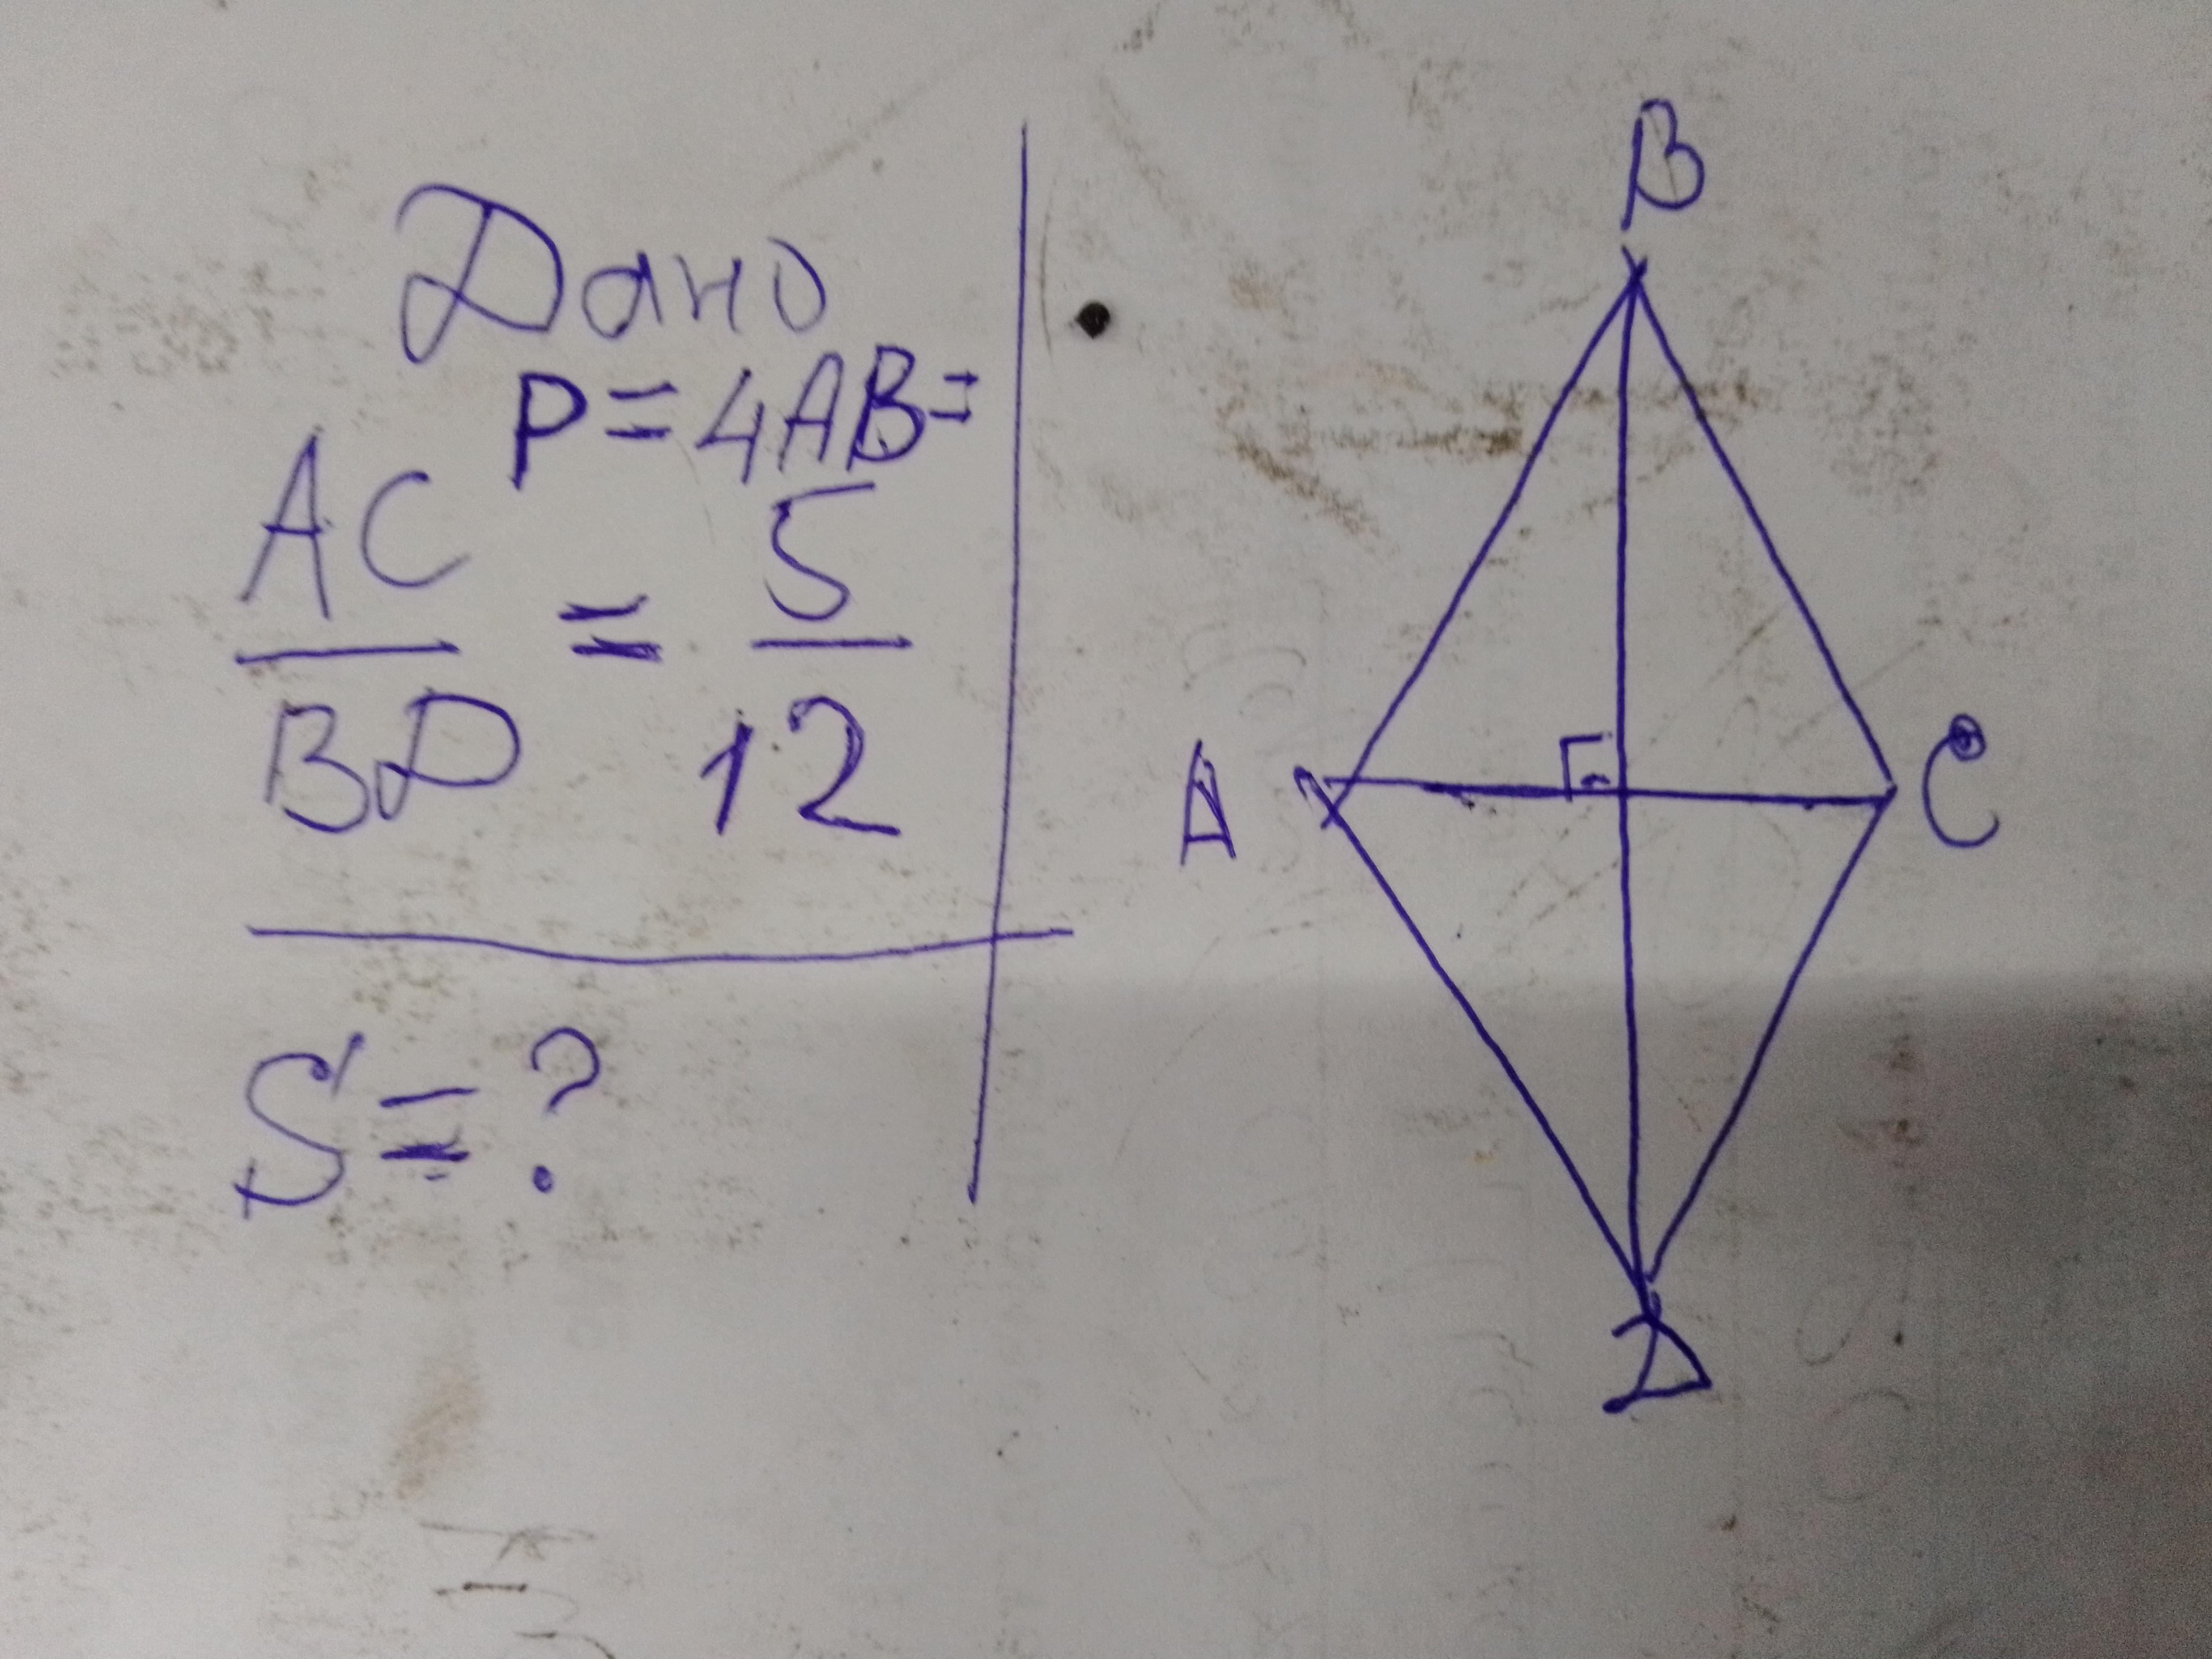 Дано
P=4AB=
AC/BD = 5/12
S=?
B
A
C
D